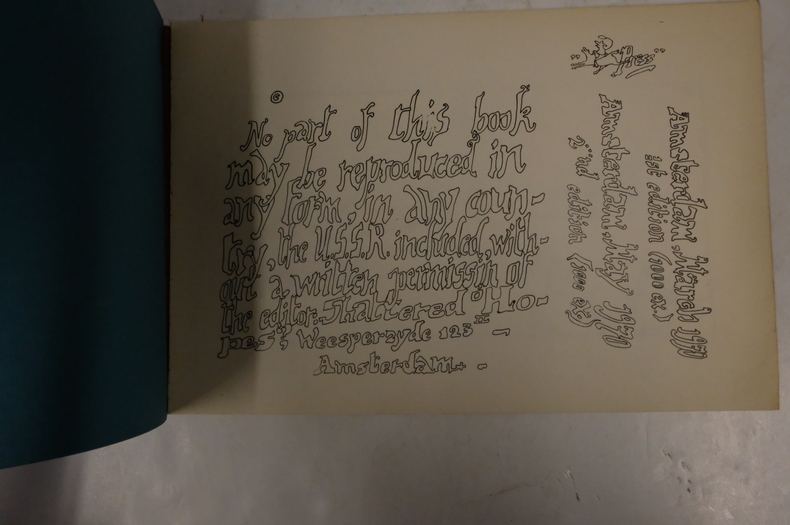 ©
No part of this book
may be reproduced in
any form, in any coun-
try, the U.S.S.R. included, with-
out a written permissin of
the editor: Shattered "Ho-
pes"; Weesperzyde 123 III -
Amsterdam. -
Press
Amsterdam, March 1970
1st edition (1000 ex.)
Amsterdam, May 1970
2nd edition